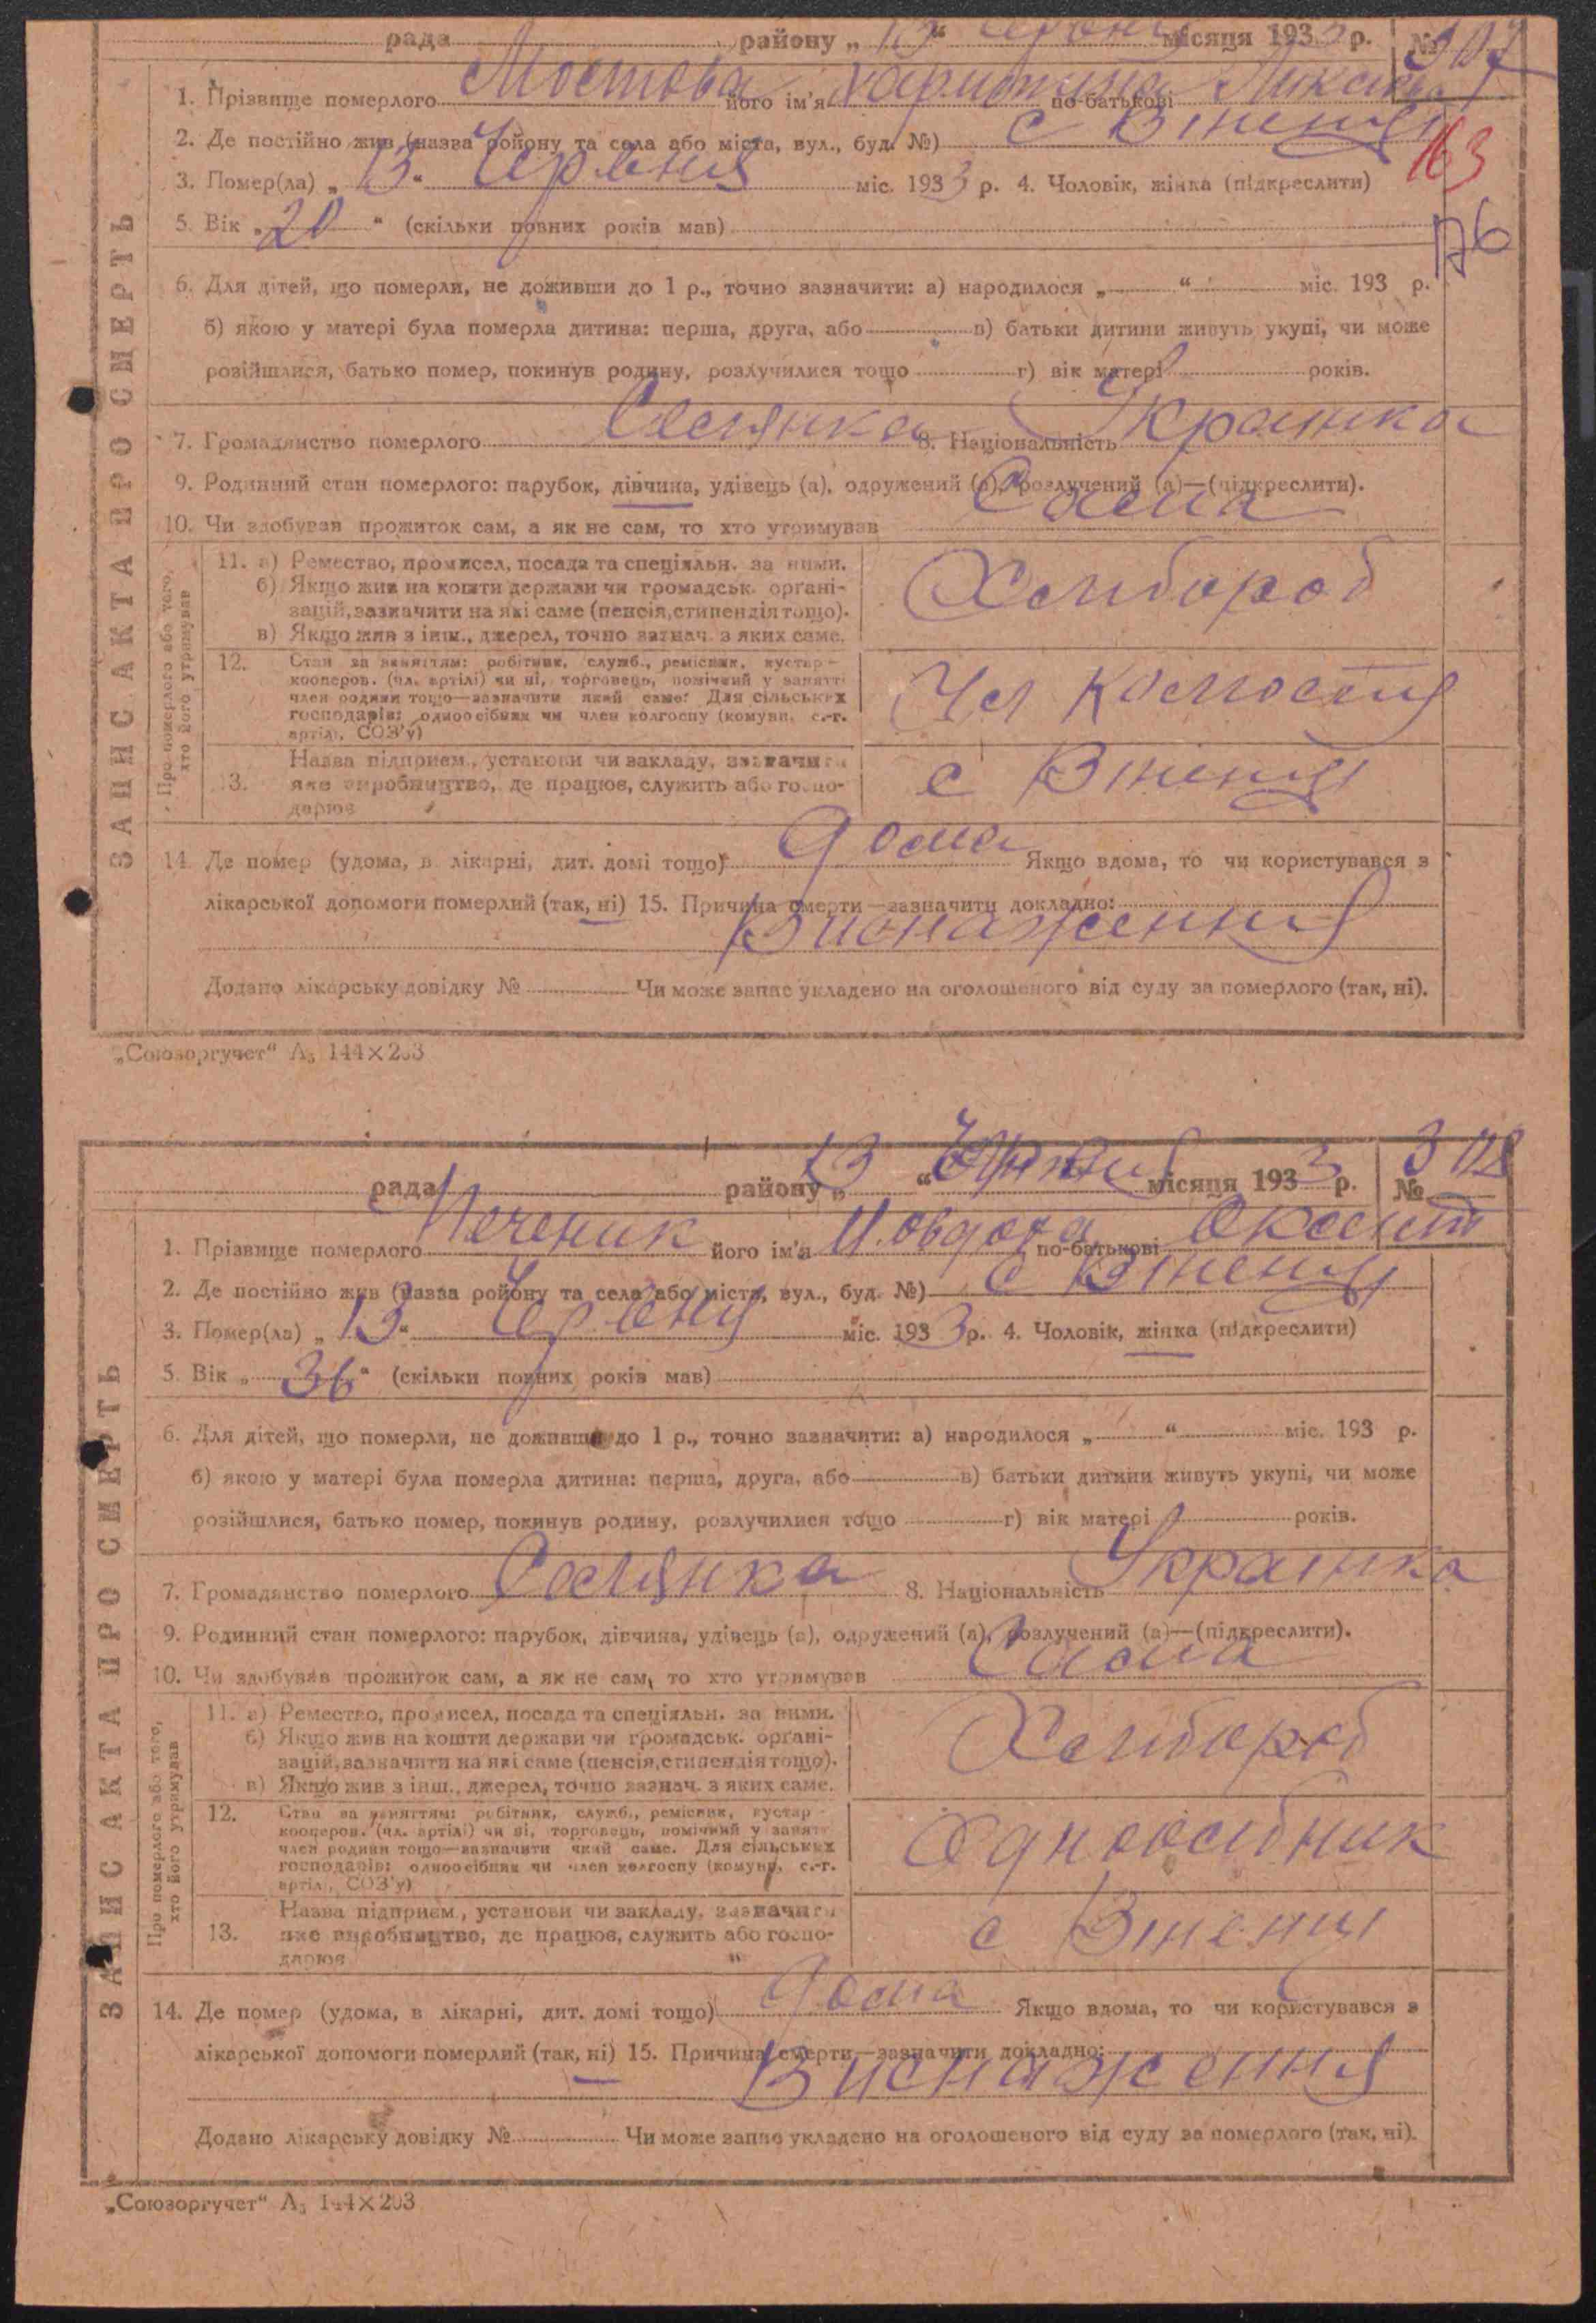 рада району „ 13 “ Червня місяця 1933 р. № 307
1. Прізвище померлого Мостова його ім'я Харитина по-батькові
2. Де постійно жив (назва ройону та села або міста, вул., буд. №) с Втенци
163
3. Помер(ла) „ 13 “ Червня міс. 1933 р. 4. Чоловік, жінка (підкреслити)
176
5. Вік „ 20 “ (скільки повних років мав)
6. Для дітей, що померли, не доживши до 1 р., точно зазначити: а) народилося „ “ міс. 193 р.
б) якою у матері була померла дитина: перша, друга, або в) батьки дитини живуть укупі, чи може
розійшлися, батько помер, покинув родину, розлучилися тощо г) вік матері років.
7. Громадянство померлого Селянка 8. Національність Украінка
9. Родинний стан померлого: парубок, дівчина, удівець (а), одружений (а), розлучений (а)—(підкреслити).
10. Чи здобував прожиток сам, а як не сам, то хто утримував Сама
ЗАПИС АКТА ПРО СМЕРТЬ
Про померлого або того, хто його утримував
11. а) Ремество, промисел, посада та спеціяльн. за ними.
б) Якщо жив на кошти держави чи громадськ. органі-
зацій, зазначити на які саме (пенсія, стипендія тощо).
в) Якщо жив з інш., джерел, точно зазнач. з яких саме.
Хлибороб
12. Стан за заняттям: робітник, служб., ремісник, кустар-
кооперов. (чл. артілі) чи ні, торговець, помічний у занятті
член родини тощо—зазначити який саме. Для сільських
господарів: одноосібник чи член колгоспу (комуни, с.-г.
артілі, СОЗ'у)
Чл
13. Назва підприєм., установи чи закладу, зазначити
яке виробництво, де працює, служить або госпо-
дарює
с Втенци
14. Де помер (удома, в лікарні, дит. домі тощо) дома Якщо вдома, то чи користувався з
лікарської допомоги померлий (так, ні) 15. Причина смерти—зазначити докладно:
Виснаження
Додано лікарську довідку № Чи може запис укладено на оголошеного від суду за померлого (так, ні).
„Союзоргучет“ А₅ 144×203
рада району „ 13 “ Червня місяця 1933 р. № 308
1. Прізвище померлого Печеник його ім'я Овдоха по-батькові Оксент
2. Де постійно жив (назва ройону та села або міста, вул., буд. №) с Втенци
3. Помер(ла) „ 13 “ Червня міс. 1933 р. 4. Чоловік, жінка (підкреслити)
5. Вік „ 36 “ (скільки повних років мав)
6. Для дітей, що померли, не доживши до 1 р., точно зазначити: а) народилося „ “ міс. 193 р.
б) якою у матері була померла дитина: перша, друга, або в) батьки дитини живуть укупі, чи може
розійшлися, батько помер, покинув родину, розлучилися тощо г) вік матері років.
7. Громадянство померлого Селянка 8. Національність Украінка
9. Родинний стан померлого: парубок, дівчина, удівець (а), одружений (а), розлучений (а)—(підкреслити).
10. Чи здобував прожиток сам, а як не сам, то хто утримував Сама
ЗАПИС АКТА ПРО СМЕРТЬ
Про померлого або того, хто його утримував
11. а) Ремество, промисел, посада та спеціяльн. за ними.
б) Якщо жив на кошти держави чи громадськ. органі-
зацій, зазначити на які саме (пенсія, стипендія тощо).
в) Якщо жив з інш., джерел, точно зазнач. з яких саме.
Хлибороб
12. Стан за заняттям: робітник, служб., ремісник, кустар-
кооперов. (чл. артілі) чи ні, торговець, помічний у занятті
член родини тощо—зазначити який саме. Для сільських
господарів: одноосібник чи член колгоспу (комуни, с.-г.
артілі, СОЗ'у)
Одноосібник
13. Назва підприєм., установи чи закладу, зазначити
яке виробництво, де працює, служить або госпо-
дарює
с Втенци
14. Де помер (удома, в лікарні, дит. домі тощо) дома Якщо вдома, то чи користувався з
лікарської допомоги померлий (так, ні) 15. Причина смерти—зазначити докладно:
Виснаження
Додано лікарську довідку № Чи може запис укладено на оголошеного від суду за померлого (так, ні).
„Союзоргучет“ А₅ 144×203